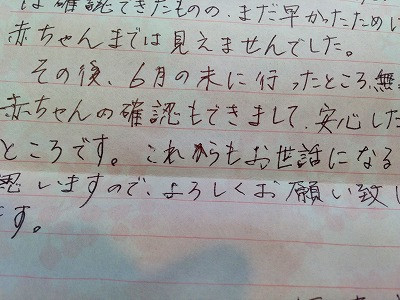 は確認できたものの、まだ早かったため
赤ちゃんまでは見えませんでした。
その後、6月の末に行ったところ、無
赤ちゃんの確認もできまして、安心した
ところです。これからもお世話になる
思いますので、よろしくお願い致し
ます。